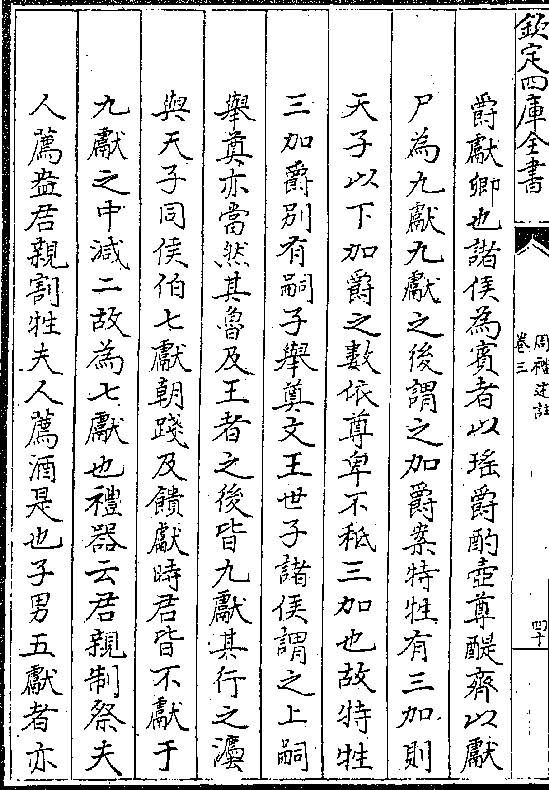 欽定四庫全書
周禮述註
卷三
四十
爵獻卿也諸侯為賓者以瑤爵酌壺尊醍齊以獻
尸為九獻九獻之後謂之加爵案特牲有三加則
天子以下加爵之數依尊卑不秪三加也故特牲
三加爵别有嗣子舉奠文王世子諸侯謂之上嗣
舉奠亦當然其魯及王者之後皆九獻其行之灋
與天子同侯伯七獻朝踐及饋獻時君皆不獻于
九獻之中減二故為七獻也禮器云君親制祭夫
人薦盎君親割牲夫人薦酒是也子男五獻者亦